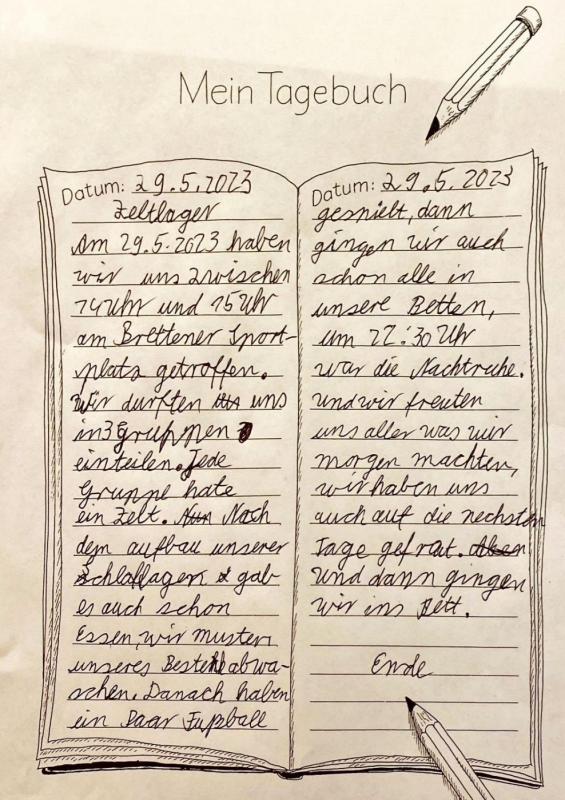 Mein Tagebuch
Datum: 29.5.2023
Zeltlager
Am 29.5.2023 haben
wir uns zwischen
14 Uhr und 15 Uhr
am Brettener Sport-
platz getroffen.
Wir durften uns
in 3 gruppen
einteilen. Jede
Gruppe hate
ein Zelt. Nach
dem aufbau unserer
Schlaflagen gab
es auch schon
Essen, wir musten
unseres Besteck abwa-
schen. Danach haben
ein Paar Fußball
Datum: 29.5.2023
gespielt, dann
gingen wir auch
schon alle in
unsere Betten,
um 22:30 Uhr
war die Nachtruhe.
und wir freuten
uns aller was wir
morgen machten,
wir haben uns
auch auf die nechsten
Tage gefreut.
Und dann gingen
wir ins Bett.
Ende